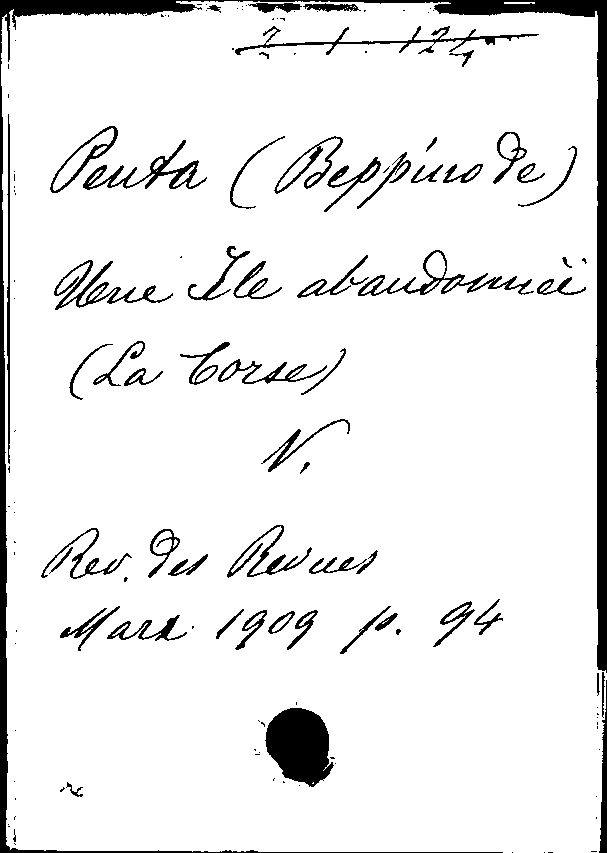 2.1.124
Penta (Beppino de)
Une Île abandonnée
(La Corse)
V.
Rev. des Revues
Mars 1909 p. 94